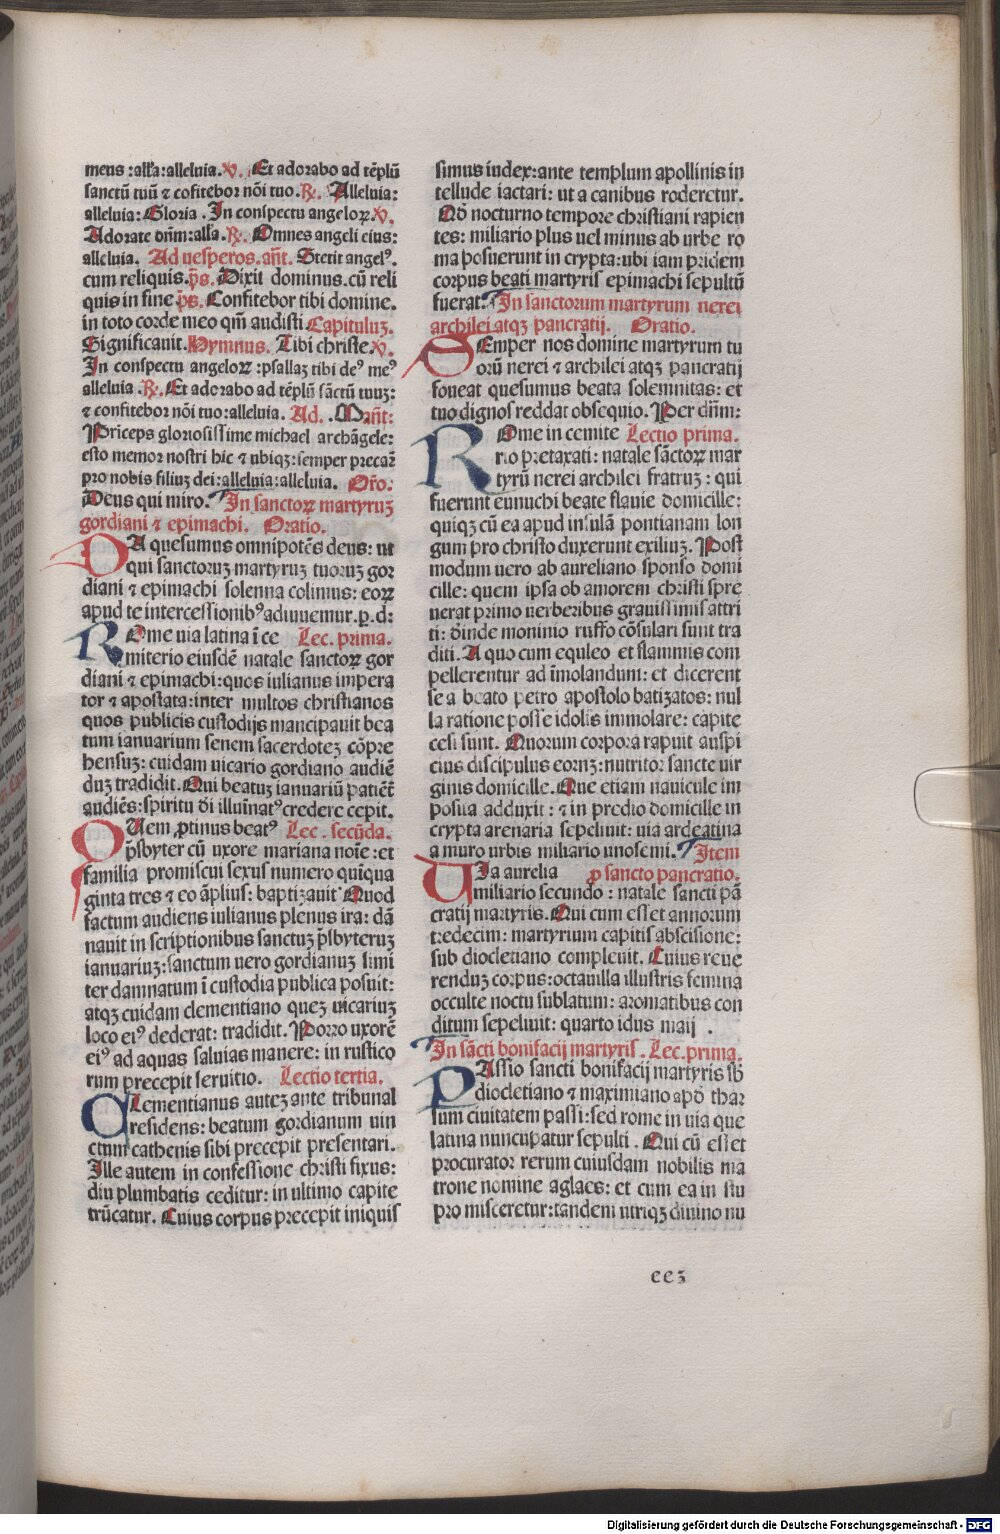 mens :allĩa:alleluia.℣. Et adorabo ad tẽplũ
sanctũ tuũ ⁊ cõfitebor nõi tuo.℟. Alleluia:
alleluia: Gloria . In conspectu angeloꝝ ℣.
Adorate dñm:alľa.℟. Omnes angeli eius:
alleluia. Ad vesperos.añt. Stetit angelꝰ.
cum reliquis.p̃s. Dixit dominus.cũ reli
quis in fine p̃s. Confitebor tibi domine.
in toto corde meo qm̃ audisti Capituluꝫ.
Significauit.Hymnus. Tibi christe.℣.
In conspectu angeloꝝ :psallaꝫ tibi deꝰ meꝰ
alleluia .℟. Et adorabo ad tẽplũ sãctũ tuuꝫ:
⁊ confitebor nõi tuo:alleluia. Ad. .Mañt:
Priceps gloriosissime michael archãgele:
esto memor nostri hic ⁊ ubiqꝫ:semper precaꝛ̃
pro nobis filiuꝫ dei:alleluia:alleluia. Or̃o:
Deus qui miro. In sanctoꝝ martyruꝫ
gordiani ⁊ epimachi. Oratio.
DA quesumus omnipotẽs deus: ut
qui sanctoruꝫ martyruꝫ tuoruꝫ gor
diani ⁊ epimachi solenna colimus: eoꝝ
apud te intercessionibꝰ adiuuemur.p.d:
ROme uia latina ĩ ce Lec. prima.
miterio eiusdẽ natale sanctoꝝ gor
diani ⁊ epimachi:quos iulianus impera
tor ⁊ apostata:inter multos christianos
quos publicis custodijs mancipauit bea
tum ianuarium senem sacerdoteꝫ cõpre
hensuꝫ: cuidam uicario gordiano audiẽ
duꝫ tradidit. Qui beatuꝫ ianuariũ patiẽt̃
audiẽs:spiritu dĩ illuĩnatꝰ credere cepit.
QUem ꝓtinus beatꝰ Lec. secũda.
p̃sbyter cũ uxore mariana noĩe :et
familia promiscui sexus numero quiqua
ginta tres ⁊ eo ãplius: baptizauit Quod
factum audiens iulianus plenus ira: dã
nauit in scriptionibus sanctuꝫ p̃sbyteruꝫ
ianuariuꝫ:sanctum uero gordianuꝫ simi
ter damnatum ĩ custodia publica posuit:
atqꝫ cuidam clementiano queꝫ uicariuꝫ
loco eiꝰ dederat: tradidit. Porro uxorẽ
eiꝰ ad aquas saluias manere: in rustico
rum precepit seruitio. Lectio tertia.
CLementianus auteꝫ ante tribunal
residens: beatum gordianum uin
ctum cathenis sibi precepit presentari.
Ille autem in confessione christi fixus:
diu plumbatis ceditur: in ultimo capite
trũcatur. Cuius corpus precepit iniquis
simus iudex:ante templum apollinis in
tellude iactari: ut a canibus roderetur.
Qð nocturno tempore christiani rapien
tes: miliario plus uel minus ab urbe ro
ma posuerunt in crypta:ubi iam pridem
corpus beati martyris epimachi sepultũ
fuerat. In sanctorum martyrum nerei
archilei atqꝫ pancratij. Oratio.
SEmper nos domine martyrum tu
orũ nerei ⁊ archilei atqꝫ pancratij
foueat quesumus beata solemnitas: et
tuo dignos reddat obsequio. Per dñm:
ROme in cemite Lectio prima.
rio pretaxati: natale sãctoꝝ mar
tyrũ nerei archilei fratruꝫ : qui
fuerunt eunuchi beate flauie domicille:
quiqꝫ cũ ea apud insulã pontianam lon
gum pro christo duxerunt exiliuꝫ. Post
modum uero ab aureliano sponso domi
cille: quem ipsa ob amorem christi spre
uerat primo uerberibus grauissimis attri
ti: ðinde moninio ruffo cõsulari sunt tra
diti. A quo cum equleo et flammis com
pellerentur ad ĩmolandum: et dicerent
se a beato petro apostolo batizatos: nul
la ratione posse idolis immolare: capite
cesi sunt. Quorum corpora rapuit auspi
cius discipulus eoruꝫ:nutritor sancte uir
ginis domicille. Que etiam nauicule im
posita adduxit : ⁊ in predio domicille in
crypta arenaria sepeliuit: uia ardeatina
a muro urbis miliario unosemi. Item
UIa aurelia ꝓ sancto pancratio.
miliario secundo : natale sancti pã
cratij martyris. Qui cum esset annorum
tredecim: martyrium capitis abscisione:
sub diocletiano compleuit. Cuius reue
renduꝫ corpus:octauilla illustris femina
occulte noctu sublatum: aromatibus con
ditum sepeliuit: quarto idus maij .
In sãcti bonifacij martyris. Lec.prima.
PAssio sancti bonifacij martyris sb̃
diocletiano ⁊ maximiano apð thar
sum ciuitatem passi:sed rome in uia que
latina nuncupatur sepulti . Qui cũ esset
procurator rerum cuiusdam nobilis ma
trone nomine aglaes: et cum ea in stu
pro misceretur:tandem utriqꝫ diuino nu
ccꝫ
Digitalisierung gefördert durch die Deutsche Forschungsgemeinschaft - DFG